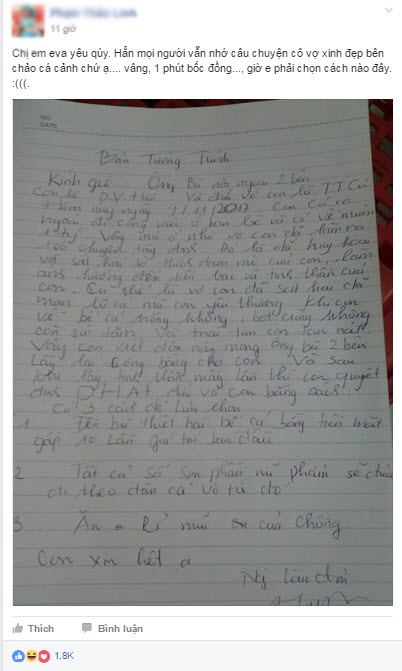 11 giờ
Chị em eva yêu qúy. Hẳn mọi người vẫn nhớ câu chuyện cô vợ xinh đẹp bên
chảo cá cảnh chứ ạ.... vâng, 1 phút bốc đồng..., giờ e phải chọn cách nào đây.
:(((.
NO
DATE
Bản Tường Trình
Kính gửi Ông Bà nội ngoại 2 bên
Con là P.V và vợ con là T.T.C
Hôm nay ngày 9/11/2017 Con có ra
ngoài đi công việc ở bạn bè và có về muộn
1 tý. Vậy mà ở nhà vợ con đã làm ra
chuyện tày đình. Đó là đã huỷ hoại
và sát hại về tinh thần đam mê của con, làm
ảnh hưởng đến tiền bạc và tinh thần của
con. Cụ thể là vợ con đã sát hại dã
man lũ cá mà con yêu thương. Khi con
về bể cá trống không, bọt cũng không
còn sủi tăm. Và trái tim con tan nát
Vậy con viết đơn này mong ông bà 2 bên
lấy lại công bằng cho con. Và sau
khi lấy tinh thần mấy lần thì con quyết
định PHẠT vợ con bằng cách:
Có 3 cách để lựa chọn
1. Đền bù thiệt hại bể cá bằng tiền mặt
gấp 10 lần giá trị ban đầu
2 Tất cả số son phấn mĩ phẩm sẽ
đi theo đàn cá vô tư đó
3 Ăn Rỉ mũi của chồng
Con xin hết ạ
Ng làm đơn
Thích
Bình luận
1,8K